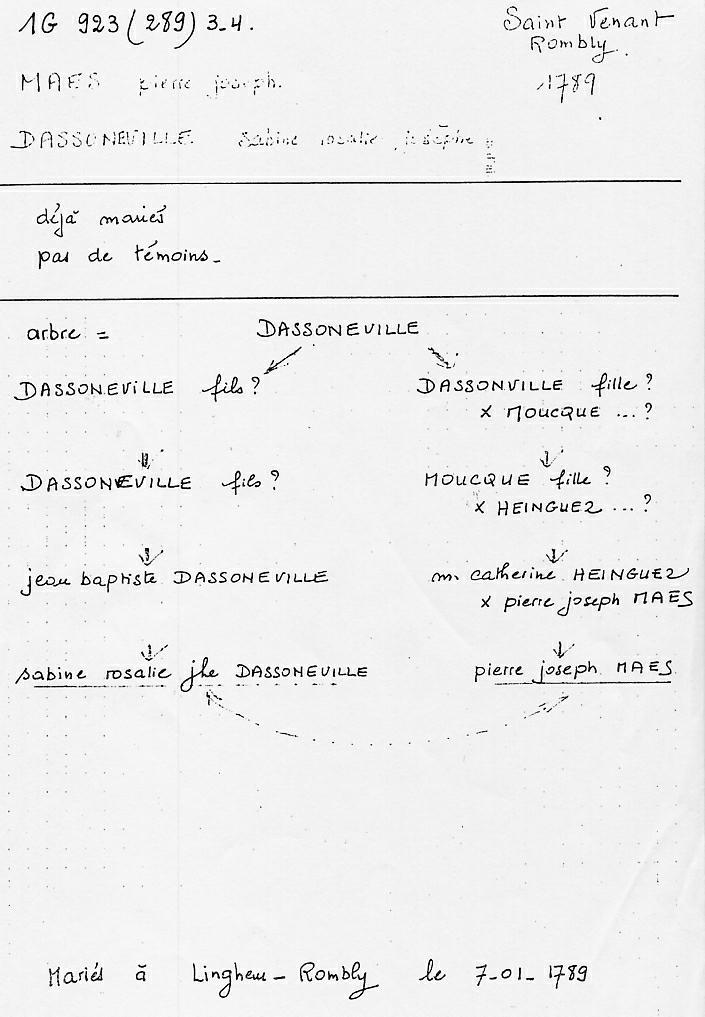 1G 923 (289) 3-4.
Saint Venant
Rombly.
MAES pierre joseph.
1789
DASSONEVILLE sabine rosalie josèphe
déjà mariés
pas de témoins-
arbre = DASSONEVILLE
DASSONEVILLE fils? DASSONVILLE fille?
x MOUCQUE ...?
DASSONEVILLE fils? MOUCQUE fille?
x HEINGUEZ ...?
jean baptiste DASSONEVILLE m. catherine HEINGUEZ
x pierre joseph MAES
sabine rosalie jhe DASSONEVILLE pierre joseph MAES
Mariés à Linghem - Rombly le 7-01-1789